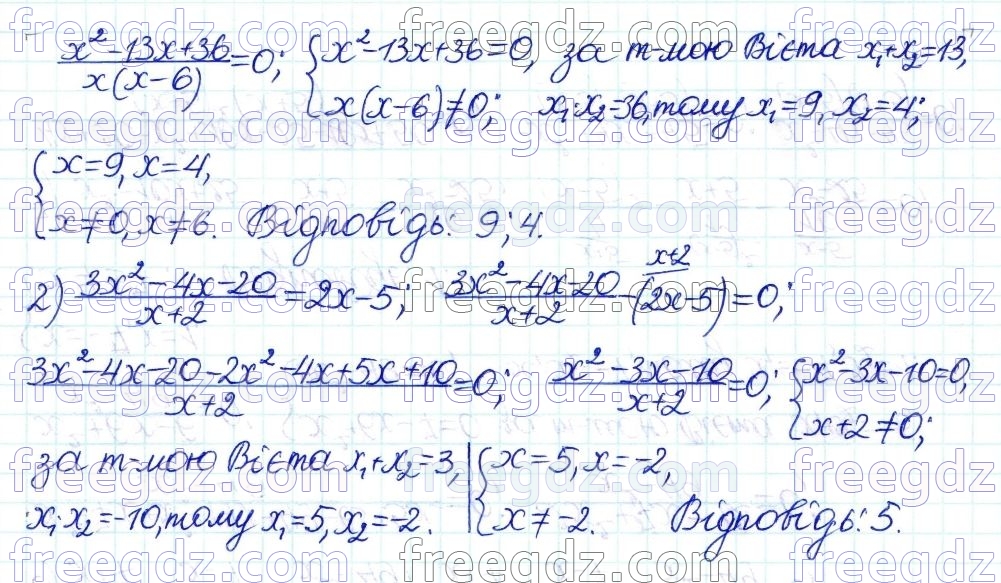 (x²-13x+36)/(x(x-6))=0; {x²-13x+36=0, за т-мою Вієта x₁+x₂=13,
x(x-6)≠0; x₁·x₂=36, тому x₁=9, x₂=4;
{x=9, x=4,
x≠0, x≠6. Відповідь: 9; 4.
2) (3x²-4x-20)/(x+2)=2x-5; (3x²-4x-20)/(x+2)-(2x-5)^(x+2)=0;
(3x²-4x-20-2x²-4x+5x+10)/(x+2)=0; (x²-3x-10)/(x+2)=0; {x²-3x-10=0,
x+2≠0;
за т-мою Вієта x₁+x₂=3, {x=5, x=-2,
x₁·x₂=-10, тому x₁=5, x₂=-2. x≠-2. Відповідь: 5.
freegdz.com